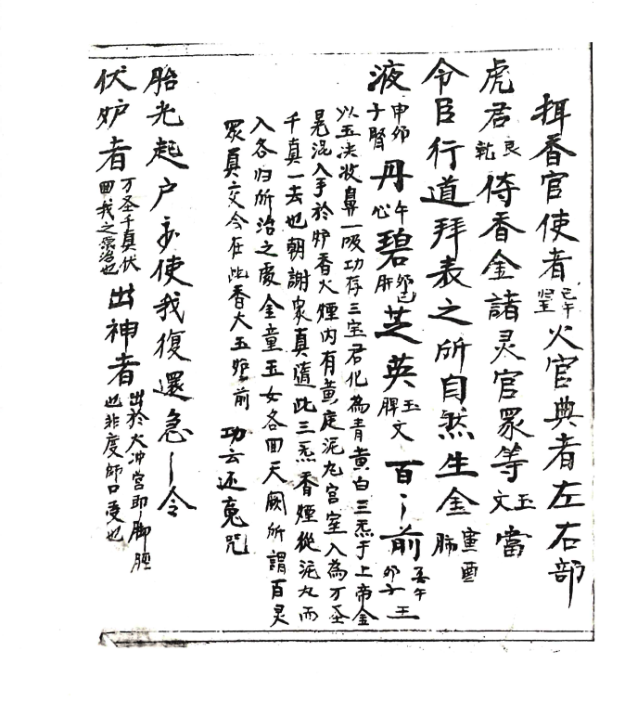 捀香官使者己午火官典者左右部
虎君艮乾侍香金諸灵官眾等玉文當
令臣行道拜表之所自然生金寅酉肺
液申卯子腎丹午心碧卯巳肝芝英玉脾文百〻前
以玉决收鼻一吸功存三宝君化為青黄白三炁于上帝金
晃混入手於炉香火烟内有黄庭泥九宫室入為万圣
千真一去也朝謝眾真随此三炁香烟從泥九而
入各归所治之處金童玉女各回天厥所謂百灵
眾真交今在此香大玉炉前 功云还魂咒
胎光起户外使我復還急〻令
伏炉者万圣千真伏回我之宗治也出神者出於大冲宫即脚脛也非度師口受也